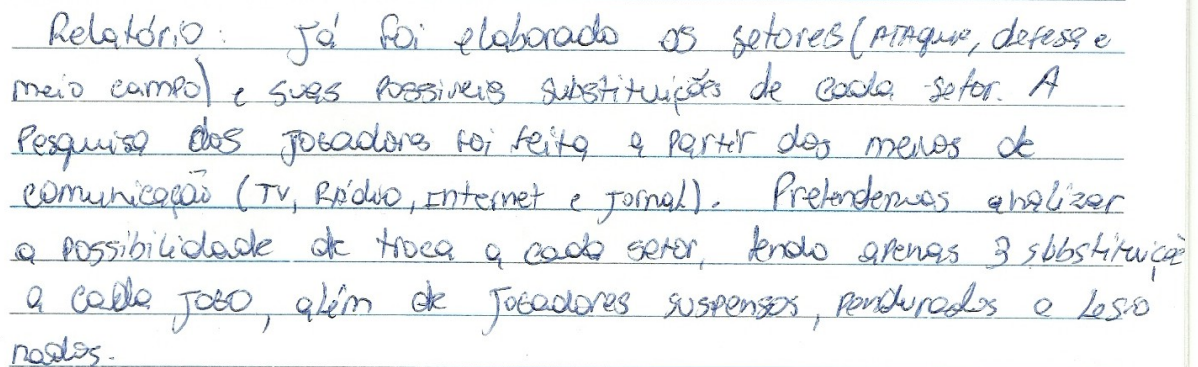 Relatório: Já foi elaborado os setores (Ataque, defesa e
meio campo) e suas possiveis substituições de cada setor. A
Pesquisa dos jogadores foi feita a partir dos meios de
comunicação (TV, Rádio, Internet e Jornal). Pretendemos analizar
a possibilidade de troca a cada setor, tendo apenas 3 substituiçõ
a cada jogo, além de jogadores suspensos, pendurados e lesio
nados.